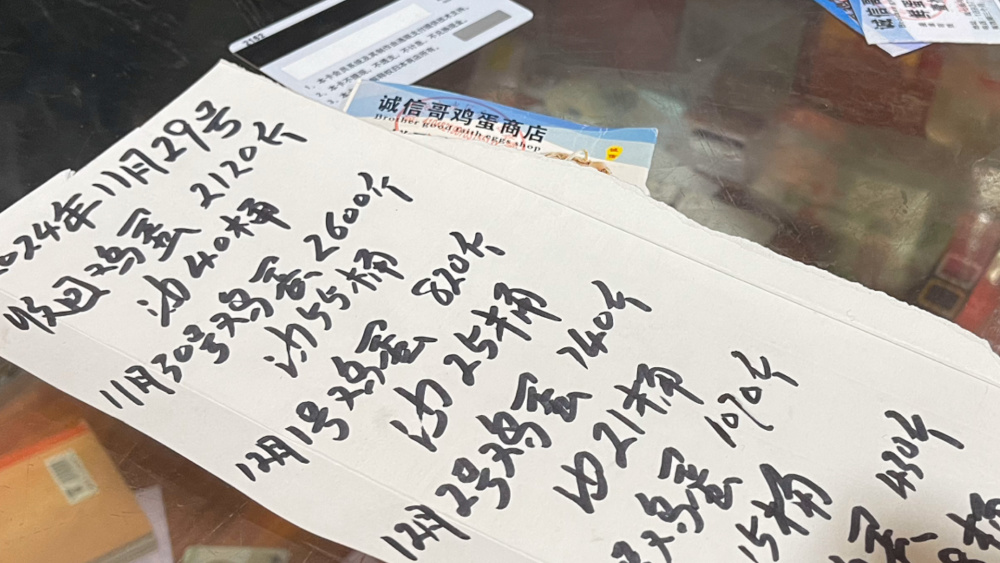 2024年11月29号
收回鸡蛋 2120个
油40桶
11月30号鸡蛋 2600个
油55桶
12月1号鸡蛋 820个
油25桶
12月2号鸡蛋 740个
油21桶
号鸡蛋 1070个
15桶
蛋 430个
8桶
诚信哥鸡蛋商店
Brother good faith eggs shop
2192